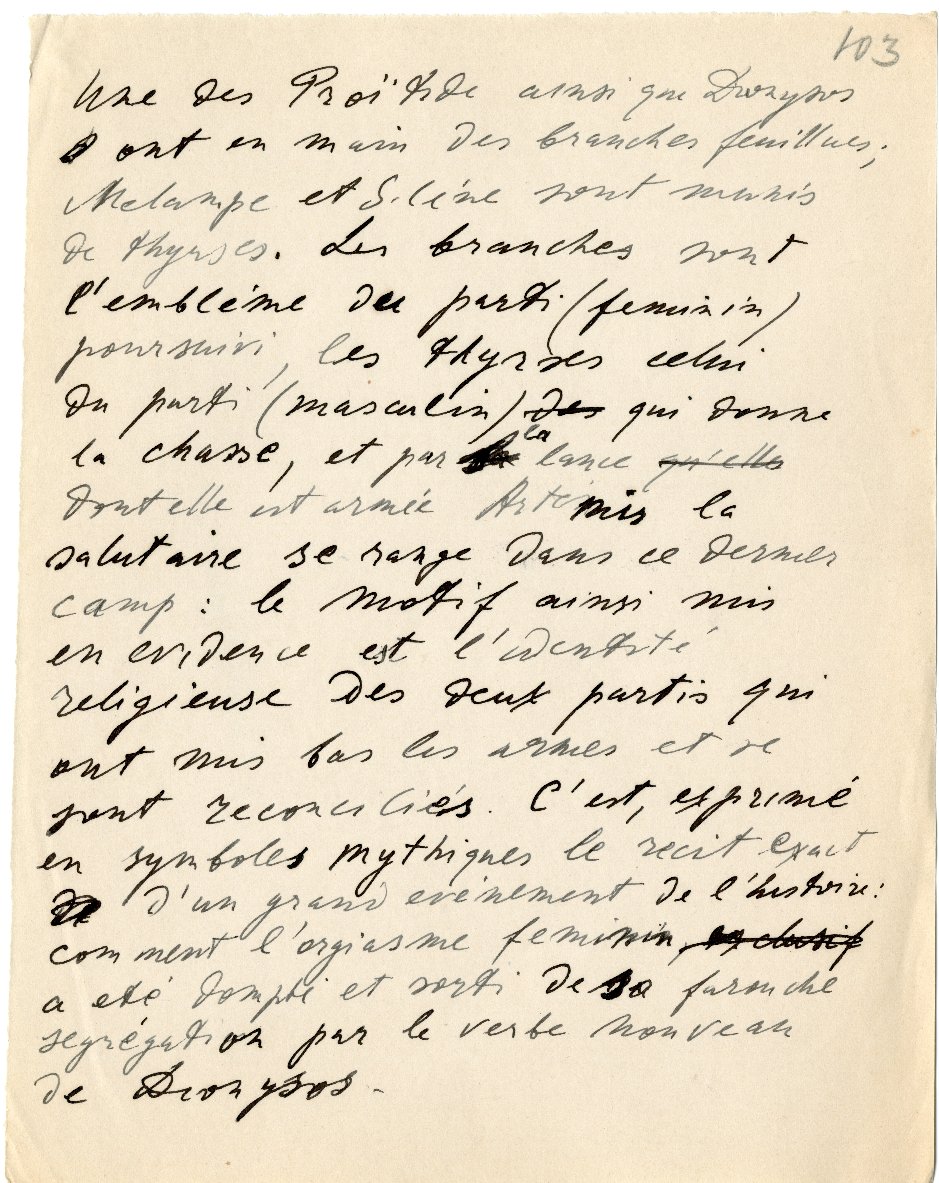 103
Une des Proïtide ainsi que Dionysos
ont en main des branches feuillues;
Melampe et Silène sont munis
de thyrses. Les branches sont
l'emblème du parti (feminin)
poursuivi, les thyrses celui
du parti (masculin) des qui donne
la chasse, et par la lance qu'elle
dont elle est armée Artémis la
salutaire se range dans ce dernier
camp : le motif ainsi mis
en evidence est l'identité
religieuse des deux partis qui
ont mis bas les armes et se
sont reconciliés. C'est, exprimé
en symboles mythiques le recit exact
de d'un grand evénement de l'histoire:
comment l'orgiasme feminin, exclusif
a eté dompté et sorti de sa farouche
segrégation par le verbe nouveau
de Dionysos -